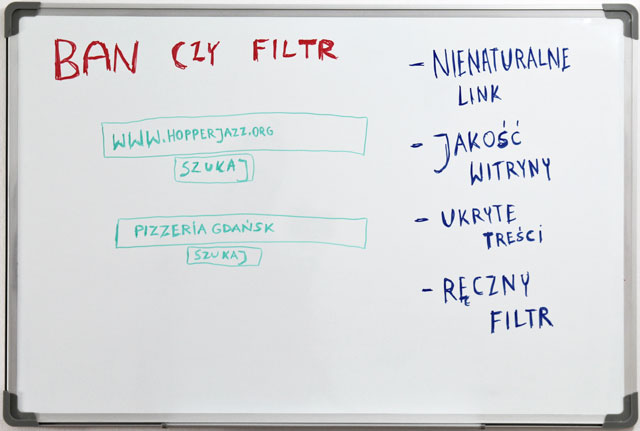 BAN CZY FILTR
WWW.HOPPERJAZZ.ORG
SZUKAJ
PIZZERIA GDAŃSK
SZUKAJ
- NIENATURALNE
LINK
- JAKOŚĆ
WITRYNY
- UKRYTE
TREŚCI
- RĘCZNY
FILTR